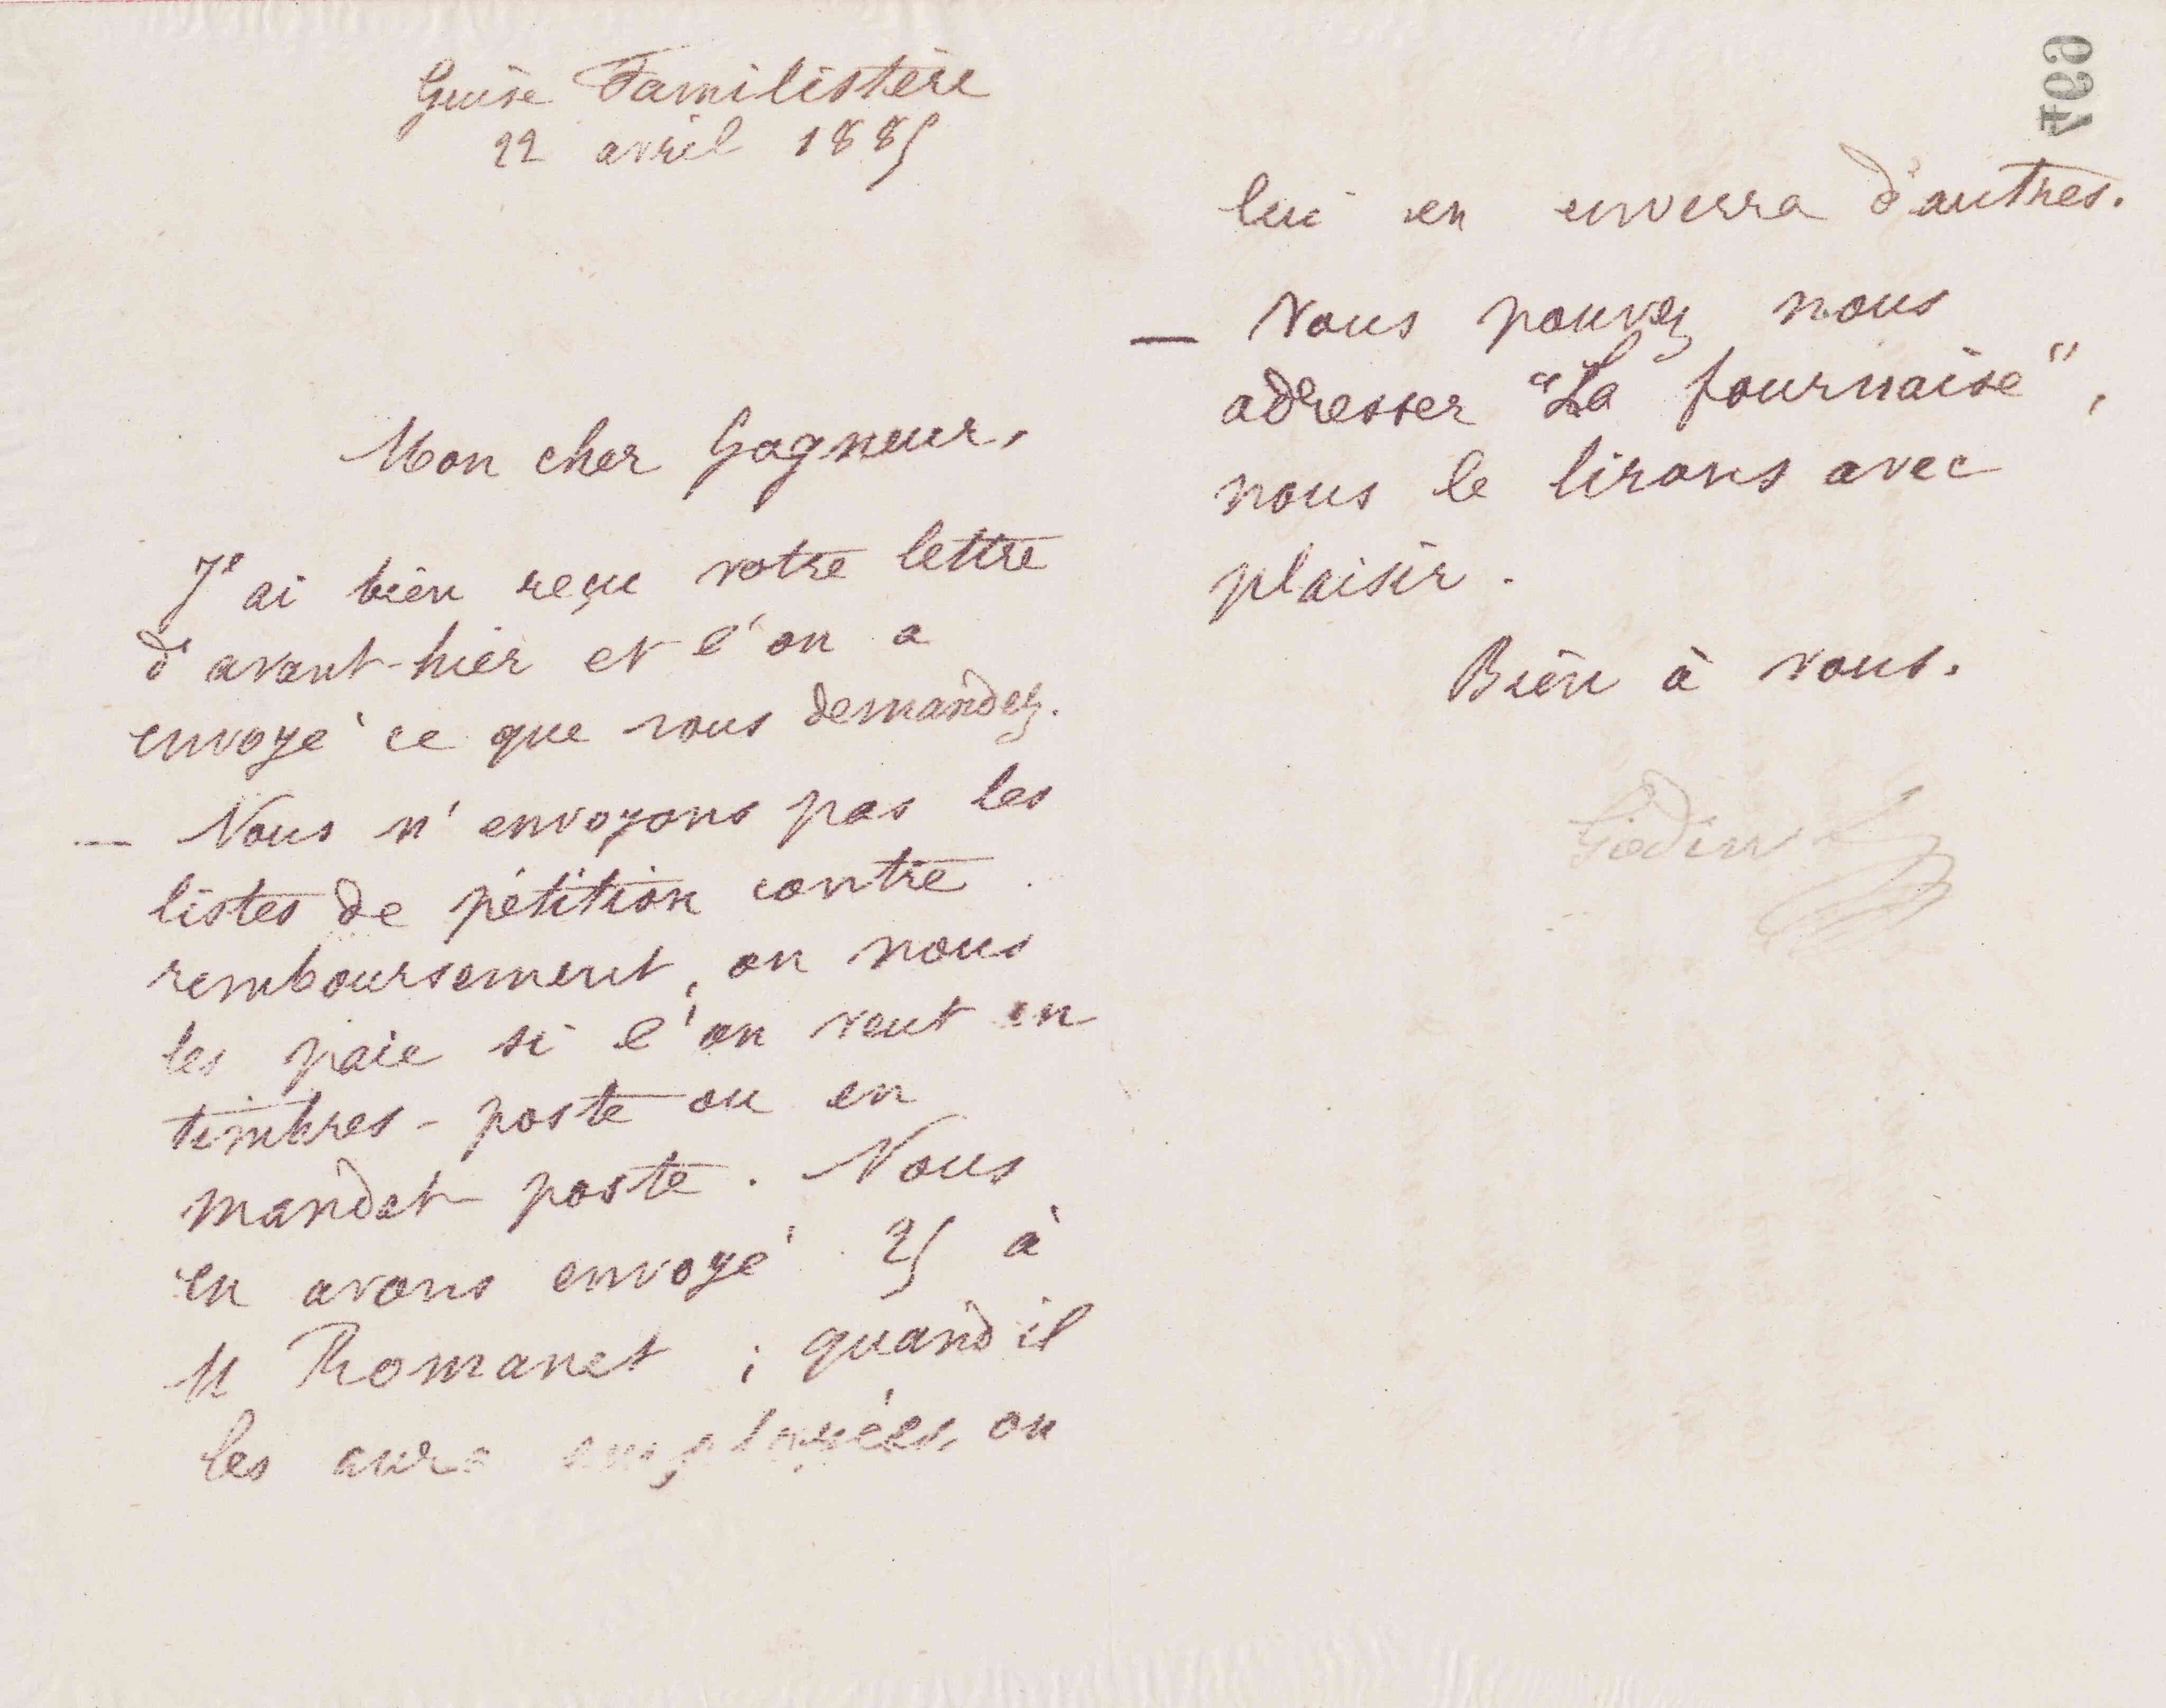 Guise Familistère
22 avril 1885
Mon cher Gagneur,
J'ai bien reçu votre lettre
d'avant-hier et l'on a
envoyé ce que vous demandez.
— Nous n'envoyons pas les
listes de pétition contre
remboursement, on nous
les paie si l'on veut en
timbres-poste ou en
mandat poste. Nous
en avons envoyé 25 à
M Romanet ; quand il
les aura employées, on
lui en enverra d'autres.
— Vous pouvez nous
adresser "La fournaise",
nous le lirons avec
plaisir.
Bien à vous.
Godin